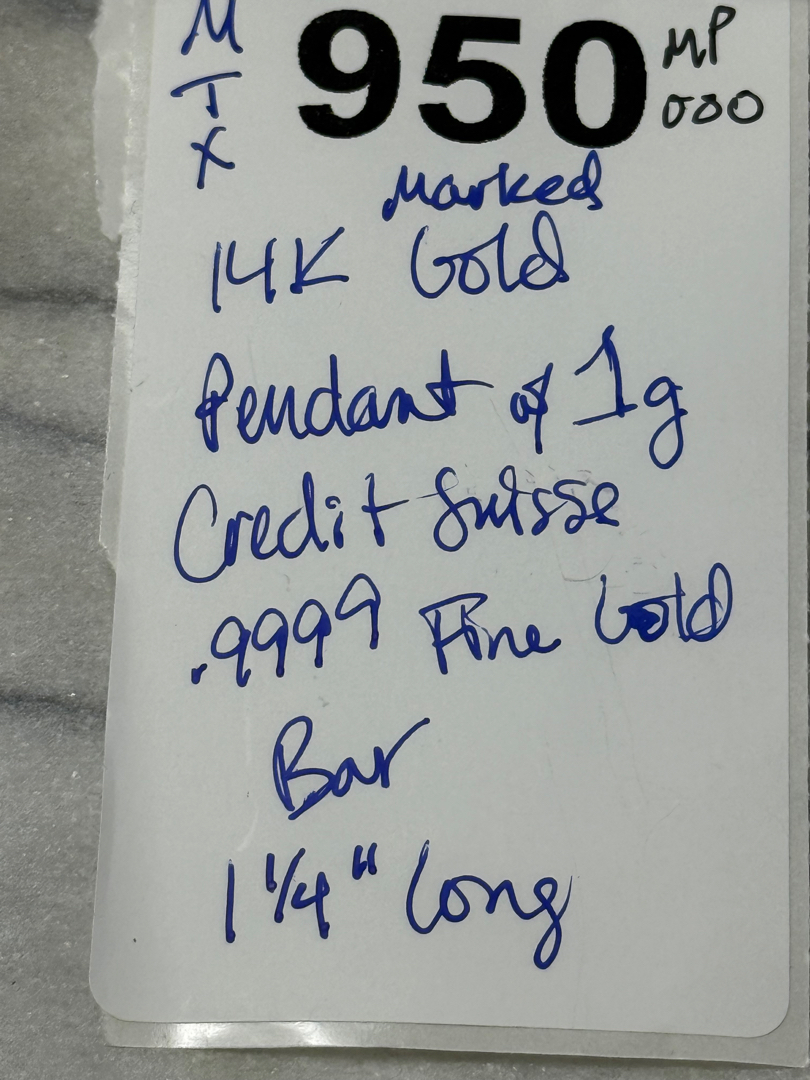 M
T
X
950
MP
000
Marked
14K Gold
Pendant of 1g
Credit Suisse
.9999 Fine Gold
Bar
1 1/4" Long